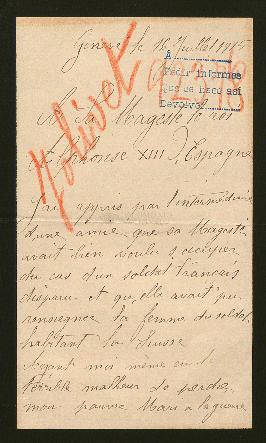 Genève le 16 Juillet 1915
A
Pedir informes
que se hace así
Devolver
A Sa Magesté le roi
Alphonse XIII d'Espagne
J'ai appris par l'intermédiaire
d'une amie que sa Magesté
avait bien voulu s'occuper
du cas d'un soldat français
disparu et qu'elle avait pu
renseigner la femme du soldat
habitant la Suisse
Ayant moi même eu le
terrible malheur de perdre
mon pauvre Mari à la guerre